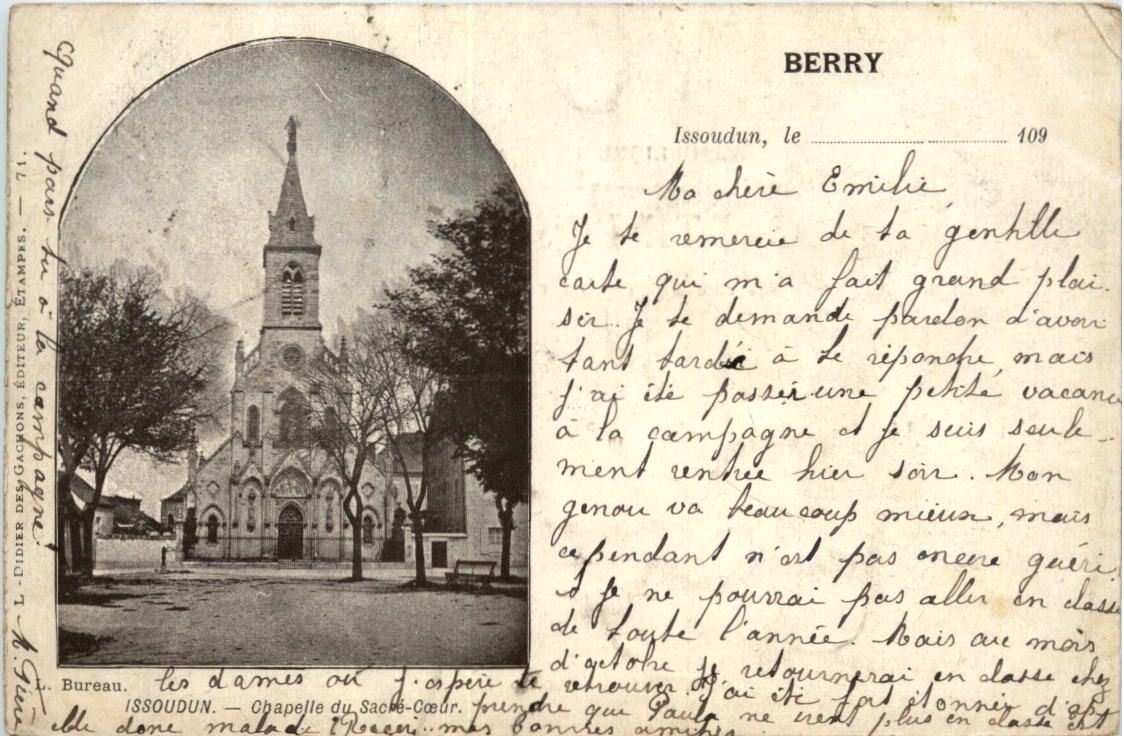 BERRY
Issoudun, le 109
Ma chère Emilie
Je te remercie de ta gentille
carte qui m'a fait grand plai-
sir. Je te demande pardon d'avoir
tant tardé à te répondre, mais
j'ai été passer une petite vacance
à la campagne et je suis seule-
ment rentrée hier soir. Mon
genou va beaucoup mieux, mais
cependant n'est pas encore guéri
et je ne pourrai pas aller en classe
de toute l'année. Mais au mois
d'octobre je retournerai en classe chez
les dames où j'espère te retrouver. J'ai été fort étonnée d'ap-
prendre que Paula ne vient plus en classe est
elle donc malade? Reçois mes bonnes amitiés.
Quand pars tu à la campagne
L. Bureau.
ISSOUDUN. — Chapelle du Sacré-Cœur.
L. DIDIER DES GACHONS, ÉDITEUR, ÉTAMPES. — 71.